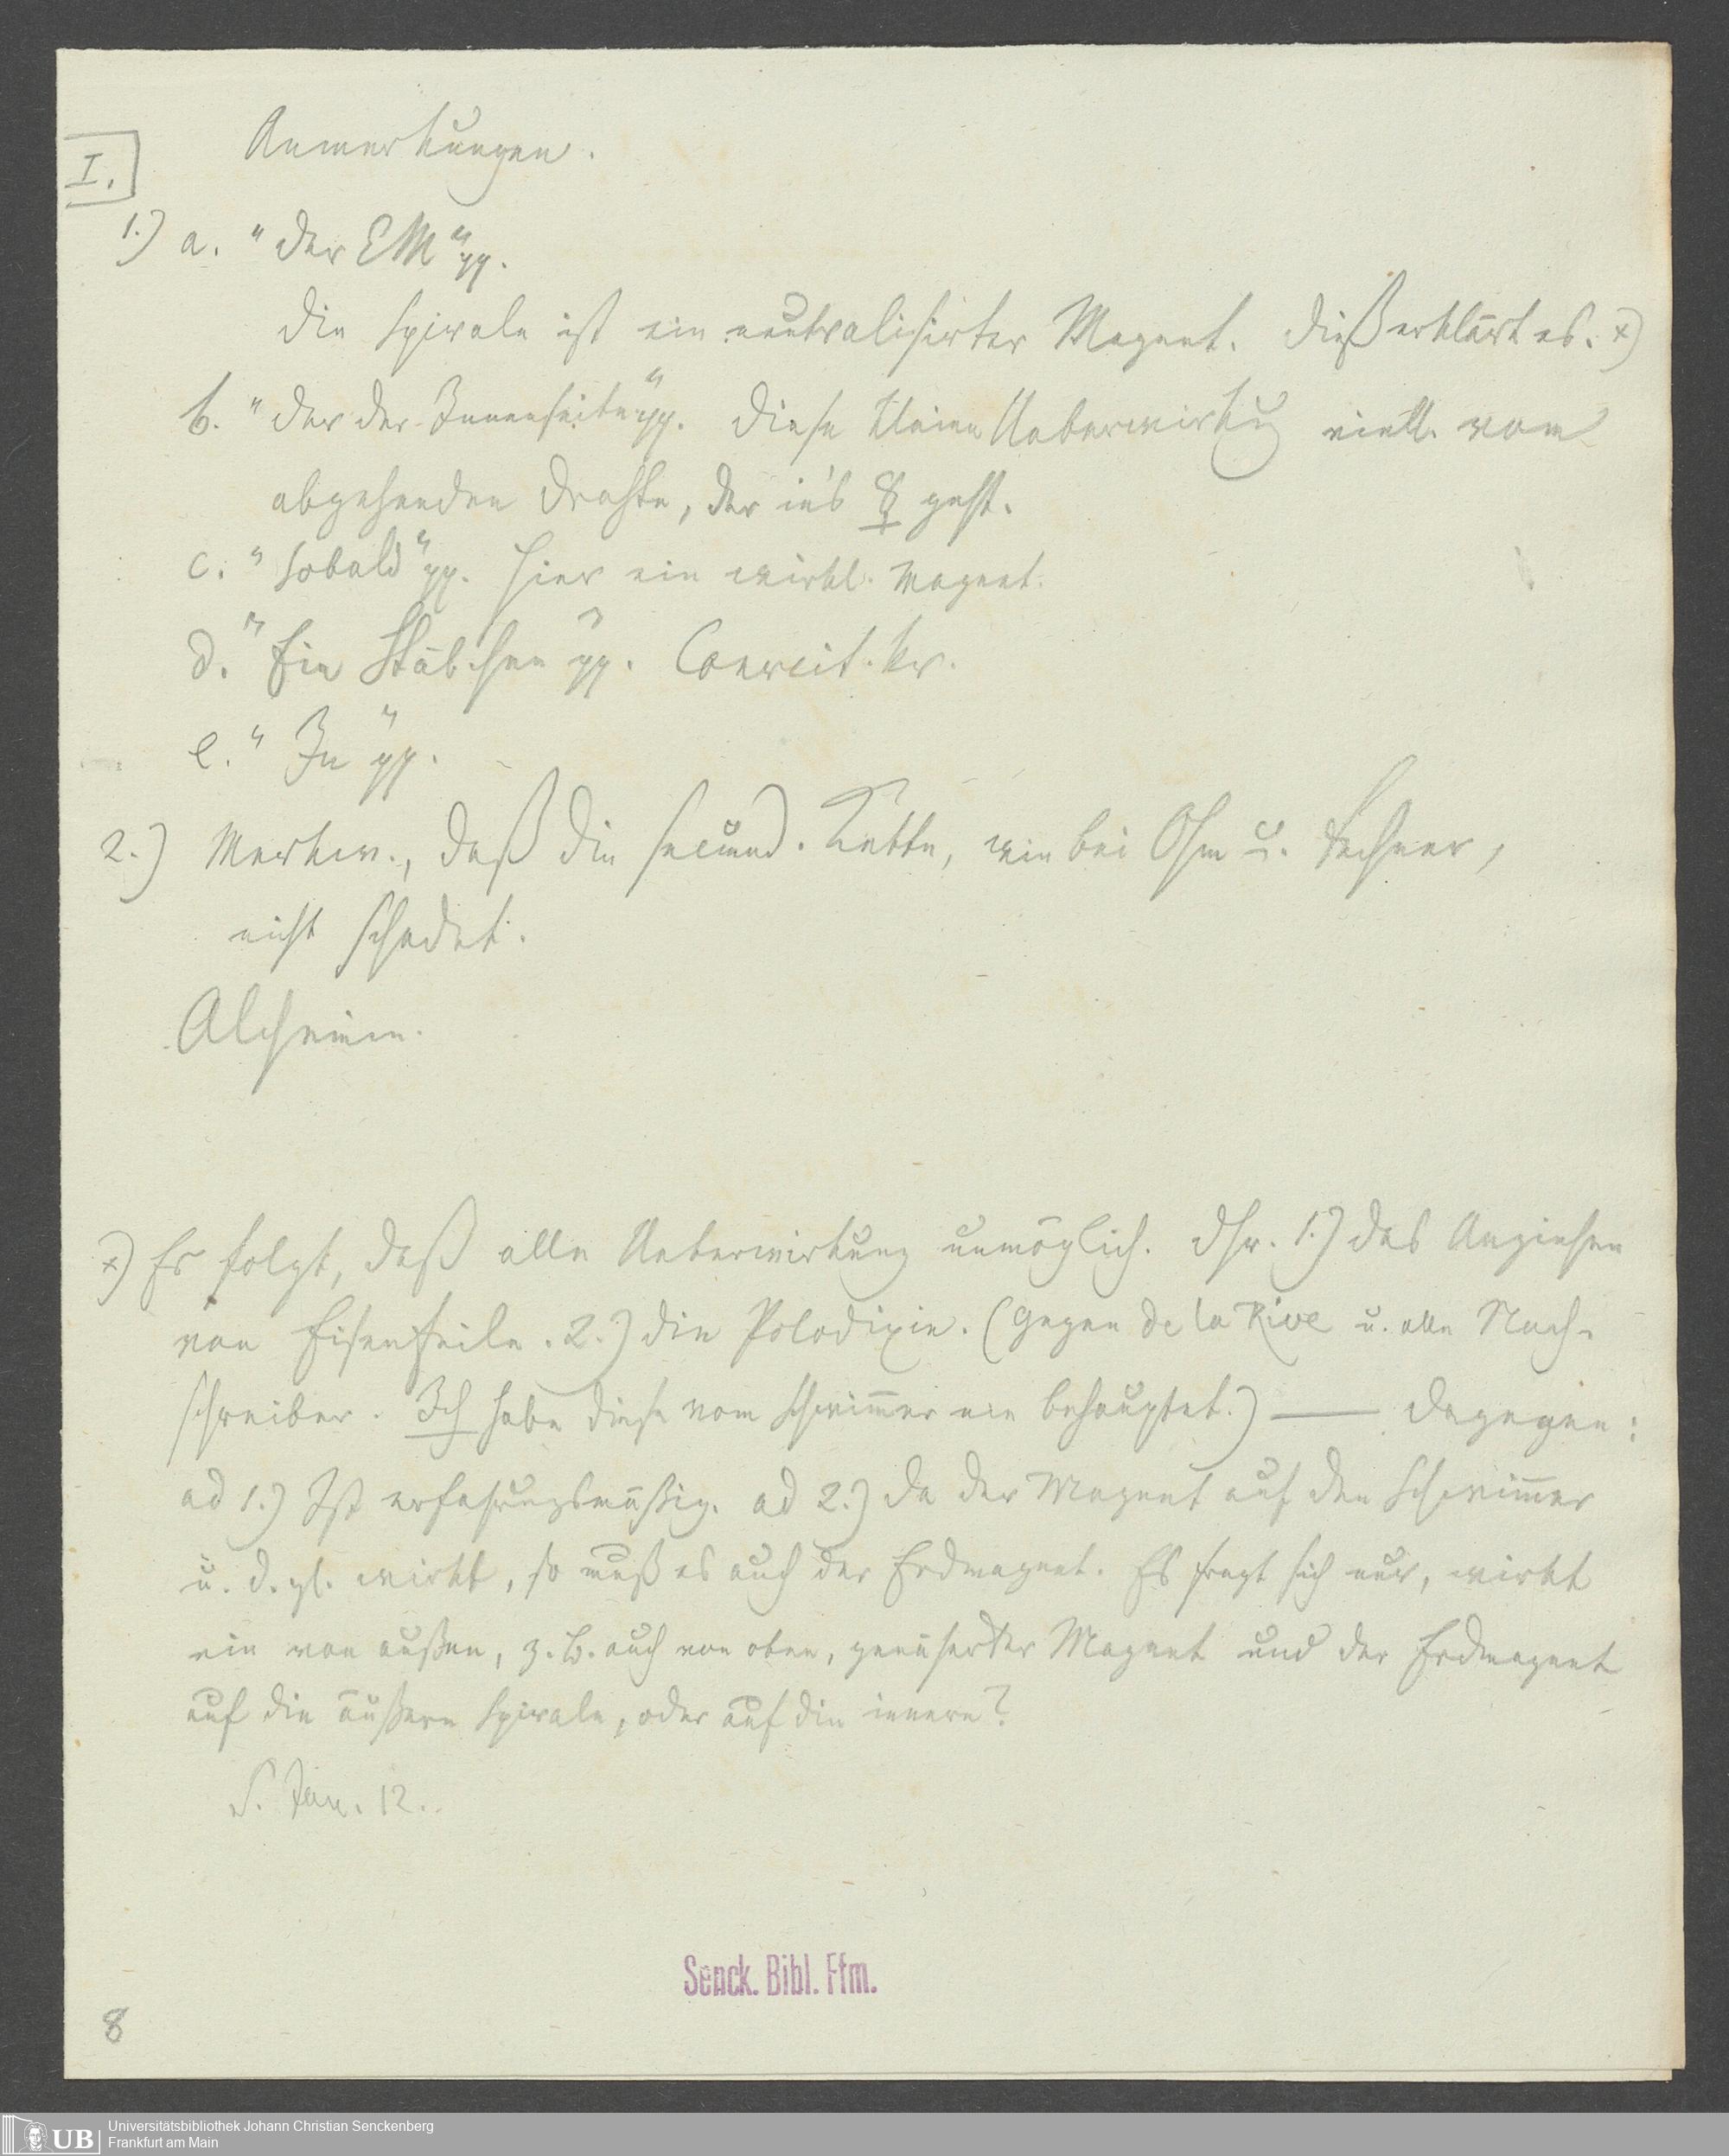 I.
Anmerkungen.
1.) a. "Der EM" pp.
Die Spirale ist ein neutralisirter Magnet. Dieß erklärt es. ×)
b. "Der der Innenseite" pp. Diese kleine Ueberwirkung vom
abgehenden Drahte, der in's ☿ geht.
c. "Sobald" pp. Hier ein wirkl. Magnet.
d. "Ein Stäbchen" pp. Coercit. kr.
e. "In" pp.
2.) Merkw., daß die secund. Kette, wie bei Ohm u. Fechner,
nicht schadet.
×) Es folgt, daß alle Ueberwirkung unmöglich. Dhr. 1.) das Anziehen
von Eisenfeile. 2.) die Polodixie. (Gegen De la Rive u. alle Nach-
schreiber. Ich habe diese vom Schwimmer nie behauptet.) — Dagegen:
ad 1.) Ist erfahrungsmäßig. ad 2.) Da der Magnet auf den Schwimmer
u. d. gl. wirkt, so muß es auch der Erdmagnet. Es fragt sich nur, wirkt
ein von außen, z. B. auch von oben, genäherter Magnet und der Erdmagnet
auf die äußere Spirale, oder auf die innere?
S. Jan. 12.
Senck. Bibl. Ffm.
8
UB
Universitätsbibliothek Johann Christian Senckenberg
Frankfurt am Main